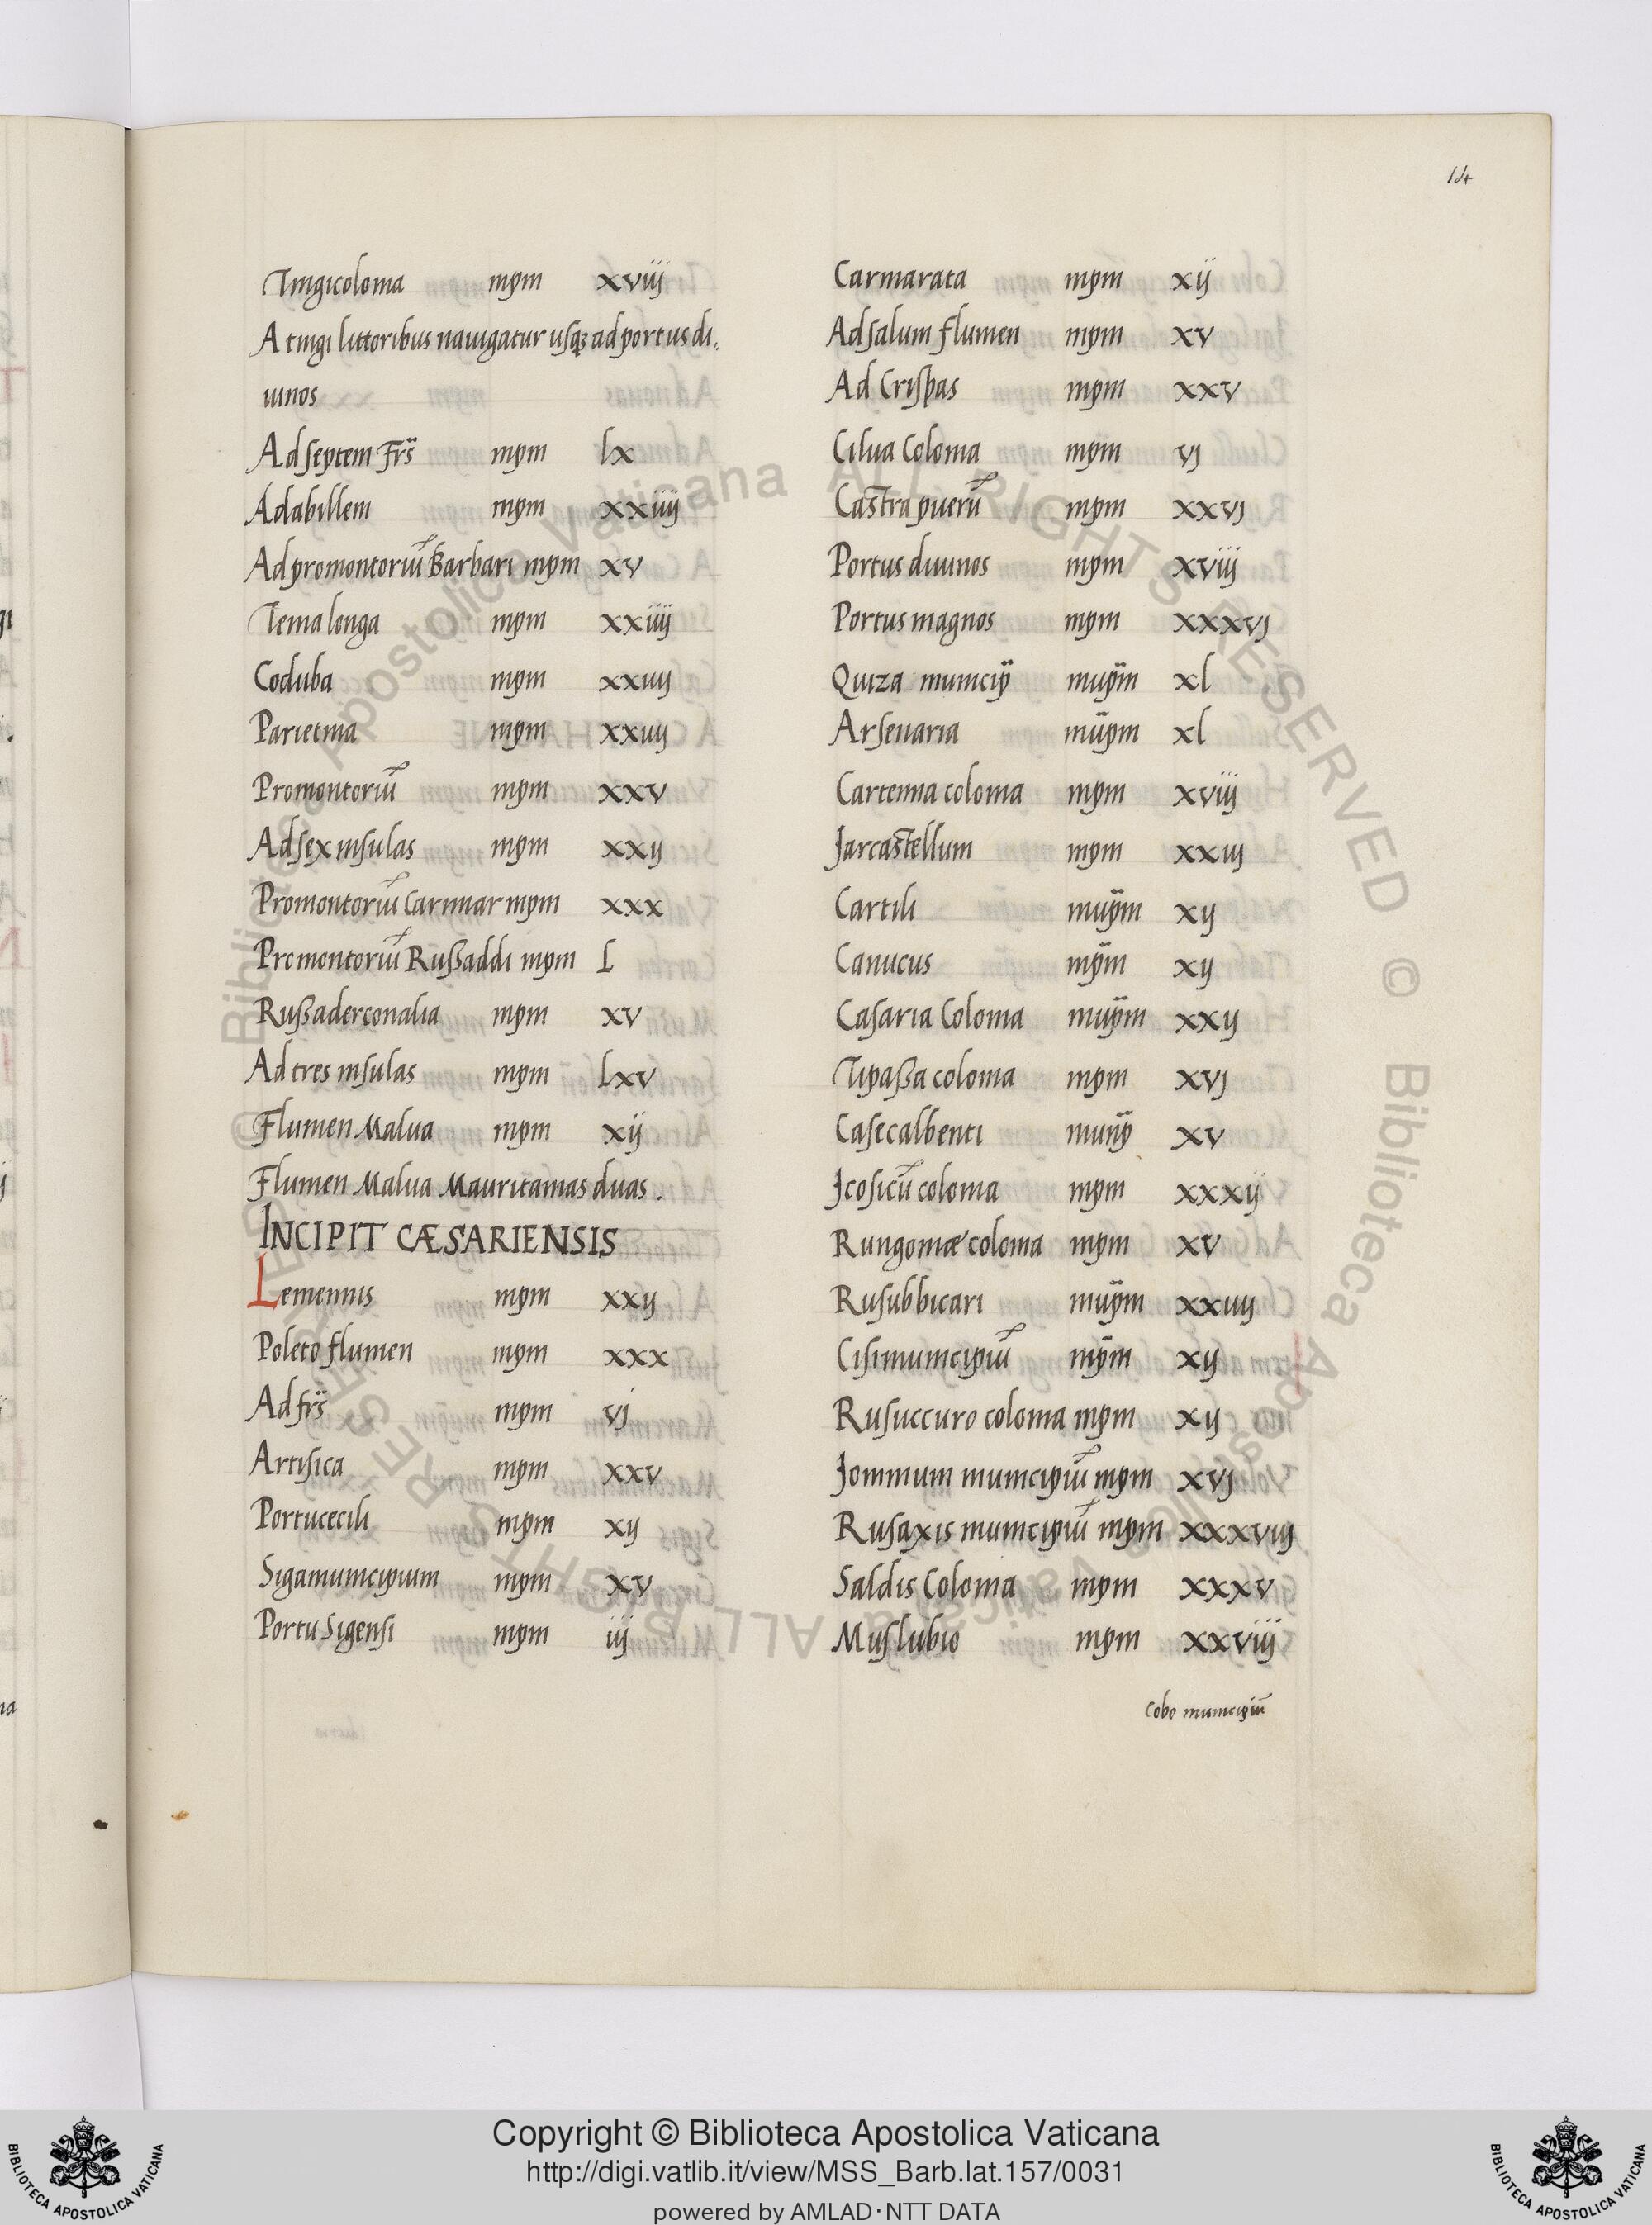 14
Tingicolonia mpm xviij
A tingi littoribus nauigatur usq; ad portus di.
uinos
Ad septem Frs̈ mpm lx
Adabillem mpm xxiiij
Ad promontoriū Barbari mpm xv
Tenia longa mpm xxiiij
Coduba mpm xxiiij
Parietina mpm xxiiij
Promontoriū mpm xxv
Ad sex insulas mpm xxij
Promontoriū Cannar mpm xxx
Promontoriū Rußaddi mpm L
Rußaderconalia mpm xv
Ad tres insulas mpm Lxv
Flumen Malua mpm xij
Flumen Malua Mauritanias duas.
INCIPIT CÆSARIENSIS
Lemennis mpm xxij
Poleto flumen mpm xxx
Ad frs̈ mpm vj
Artisica mpm xxv
Portucecili mpm xij
Sigamunicipium mpm xv
Portu Sigensi mpm iij
Carmarata mpm xij
Ad salum flumen mpm xv
Ad Crispas mpm xxv
Cilua Colonia mpm vj
Castra puerū mpm xxvj
Portus diuinos mpm xviij
Portus magnos mpm xxxvj
Quiza municip̈ mup̈m xl
Arsenaria mūpm xl
Cartenna colonia mpm xviij
Jarcastellum mpm xxiij
Cartili mup̈m xij
Canucus mp̈m xij
Casaria Colonia mup̈m xxij
Tipaßa colonia mpm xvj
Casecalbenti mun̄p xv
Jcosicū colonia mpm xxxij
Rungoniæ colonia mpm xv
Rusubbicari mup̈m xxiiij
Cisimunicipiū mp̄m xij
Rusuccuro colonia mpm xij
Jommum municipiū mpm xvj
Rusaxis municipiū mpm xxxviij
Saldis Colonia mpm xxxv
Muslubio mpm xxviij
Cobo municipiū
© Biblioteca Apostolica Vaticana ALL RIGHTS RESERVED © Biblioteca Apostolica Vaticana ALL RIGHTS RESERVED
Copyright © Biblioteca Apostolica Vaticana
http://digi.vatlib.it/view/MSS_Barb.lat.157/0031
powered by AMLAD·NTT DATA
BIBLIOTECA APOSTOLICA VATICANA
BIBLIOTECA APOSTOLICA VATICANA